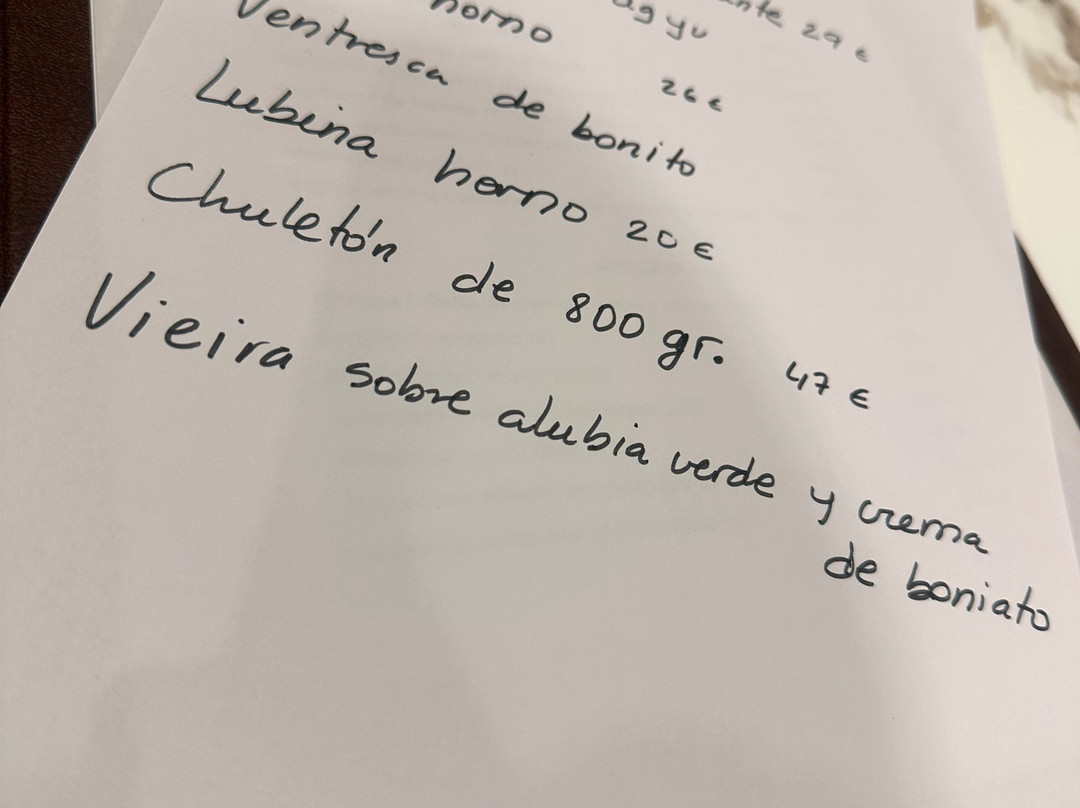 29 €
horno 26 €
Ventresca de bonito
Lubina horno 20 €
Chuletón de 800 gr. 47 €
Vieira sobre alubia verde y crema
de boniato